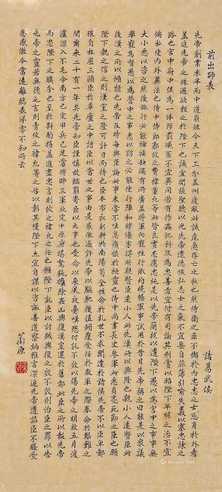 前出師表
諸葛武侯
先帝創業未半而中道崩殂今天下三分益州疲敝此誠危急存亡之秋也然侍衛之臣不懈於內忠志之士忘身於外者
蓋追先帝之殊遇欲報之於陛下也誠宜開張聖聽以光先帝遺德恢弘志士之氣不宜妄自菲薄引喻失義以塞忠諫之
路也宮中府中俱為一體陟罰臧否不宜異同若有作奸犯科及為忠善者宜付有司論其刑賞以昭陛下平明之治不宜
偏私使內外異法也侍中侍郎郭攸之費禕董允等此皆良實志慮忠純是以先帝簡拔以遺陛下愚以為宮中之事事無
大小悉以咨之然後施行必能裨補闕漏有所廣益將軍向寵性行淑均曉暢軍事試用於昔日先帝稱之曰能是以眾議
舉寵為督愚以為營中之事悉以咨之必能使行陣和睦優劣得所親賢臣遠小人此先漢所以興隆也親小人遠賢臣此
後漢所以傾頹也先帝在時每與臣論此事未嘗不歎息痛恨於桓靈也侍中尚書長史參軍此悉貞良死節之臣也願
陛下親之信之則漢室之隆可計日而待也臣本布衣躬耕於南陽苟全性命於亂世不求聞達於諸侯先帝不以臣卑鄙
猥自枉屈三顧臣於草廬之中諮臣以當世之事由是感激遂許先帝以驅馳後值傾覆受任於敗軍之際奉命於危難之
間爾來二十有一年矣先帝知臣謹慎故臨崩寄臣以大事也受命以來夙夜憂歎恐託付不效以傷先帝之明故五月渡
瀘深入不毛今南方已定兵甲已足當獎率三軍北定中原庶竭駑鈍攘除姦凶興復漢室還於舊都此臣所以報先帝而忠
陛下之職分也至於斟酌損益進盡忠言則攸之禕允之任也願陛下託臣以討賊興復之效不效則治臣之罪以告
先帝之靈若無興德之言則責攸之禕允等之慢以彰其咎陛下亦宜自謀以諮諏善道察納雅言深追先帝遺詔臣不勝受
恩感激今當遠離臨表涕零不知所云